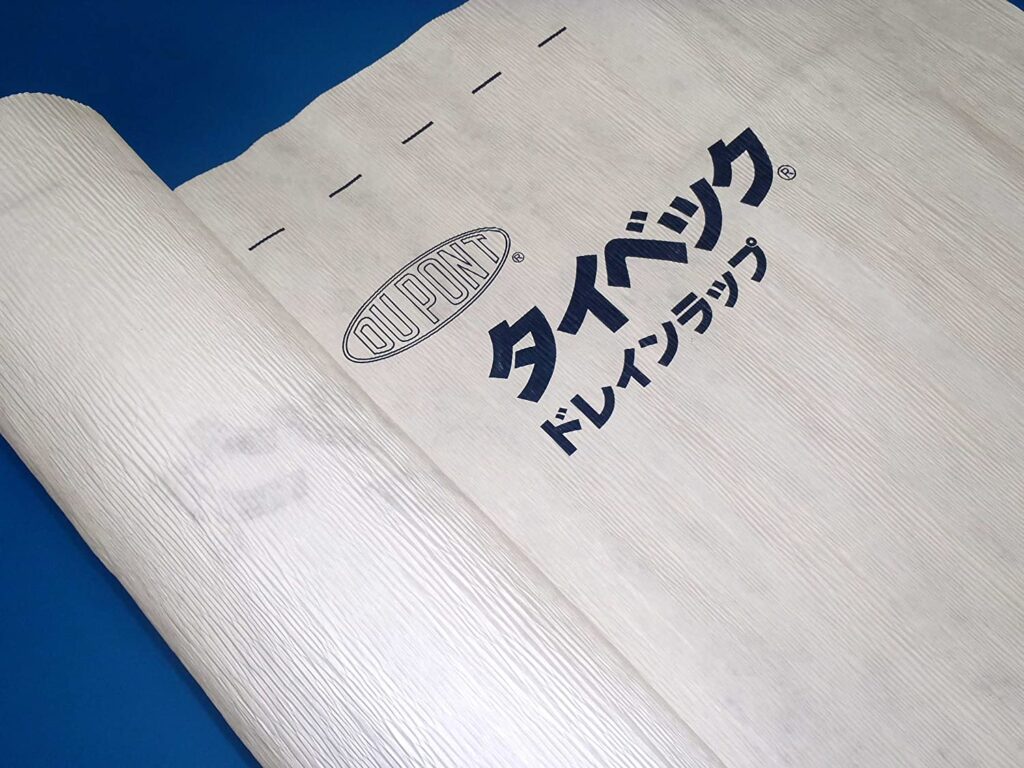 DU PONT®
タイベック®
ドレインラップ